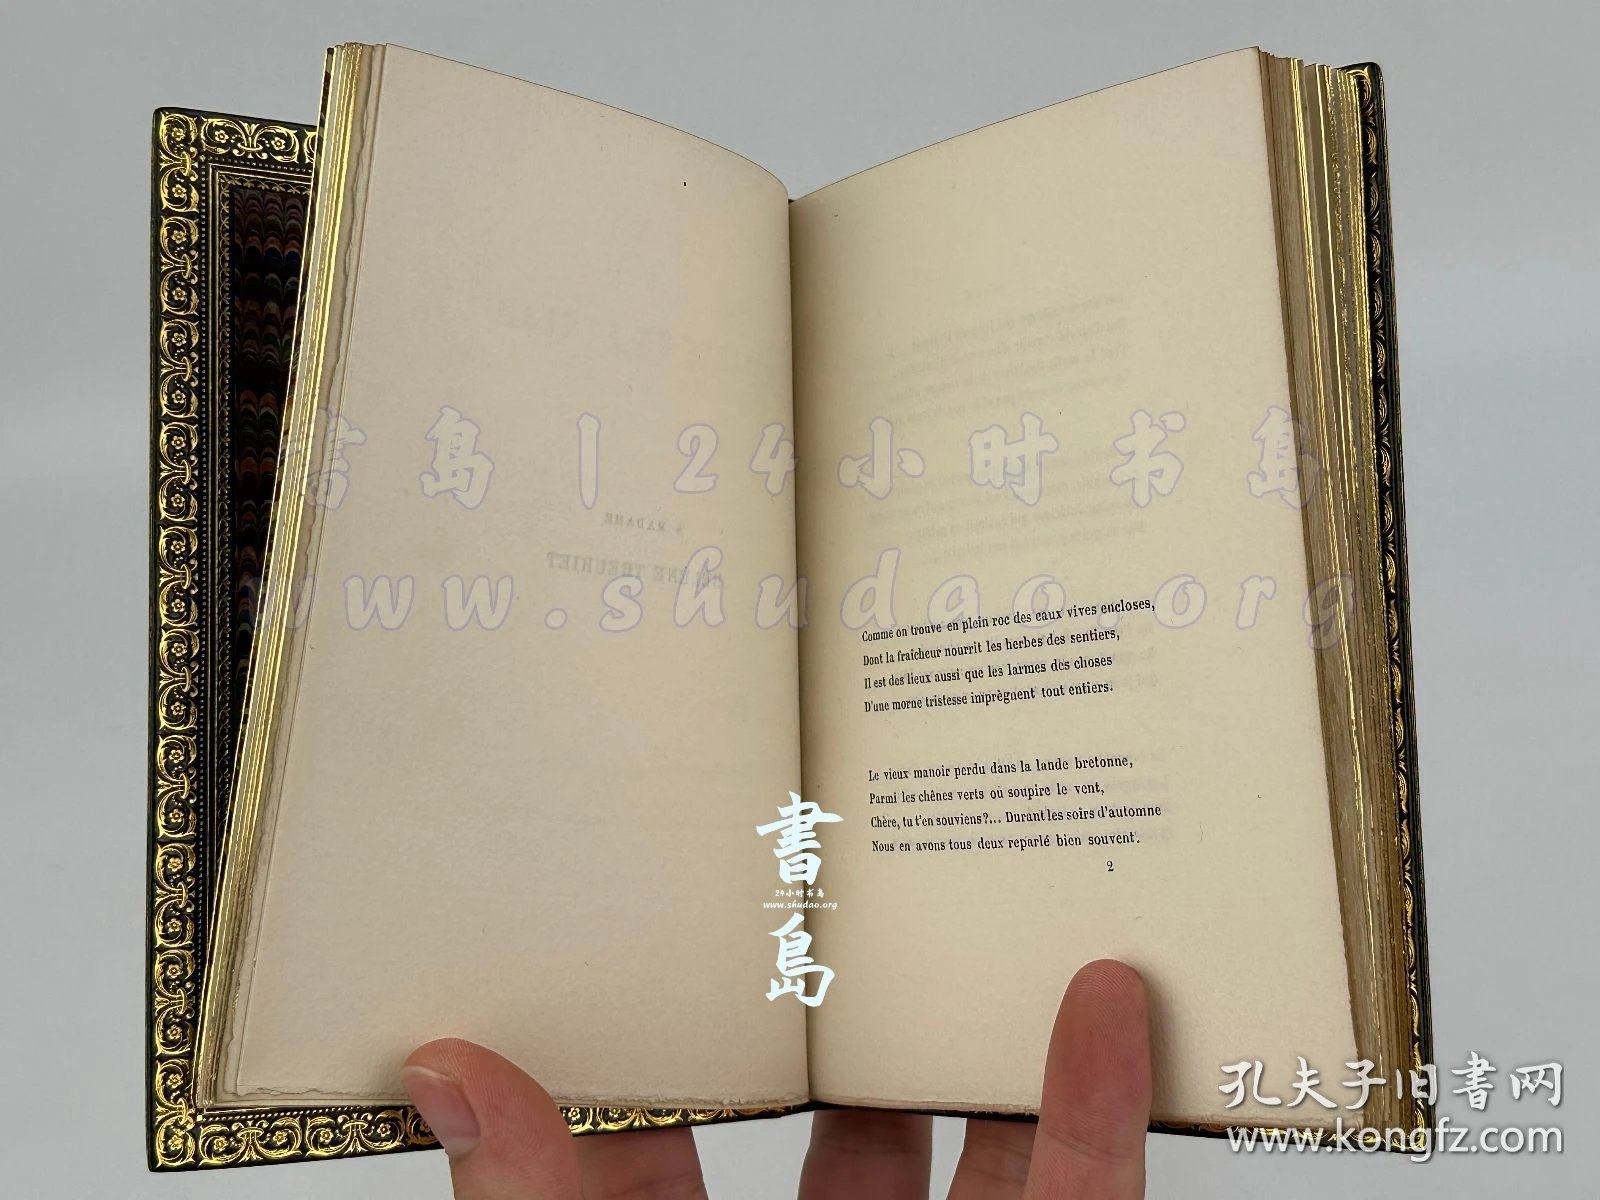 書島 | 24小时书岛
www.shudao.org
Comme on trouve en plein roc des eaux vives encloses,
Dont la fraîcheur nourrit les herbes des sentiers,
Il est des lieux aussi que les larmes des choses
D'une morne tristesse imprègnent tout entiers.
Le vieux manoir perdu dans la lande bretonne,
Parmi les chênes verts où soupire le vent,
Chère, tu t'en souviens?... Durant les soirs d'automne
Nous en avons tous deux reparlé bien souvent.
2
書
24小时书岛
www.shudao.org
島
孔夫子旧书网
www.kongfz.com